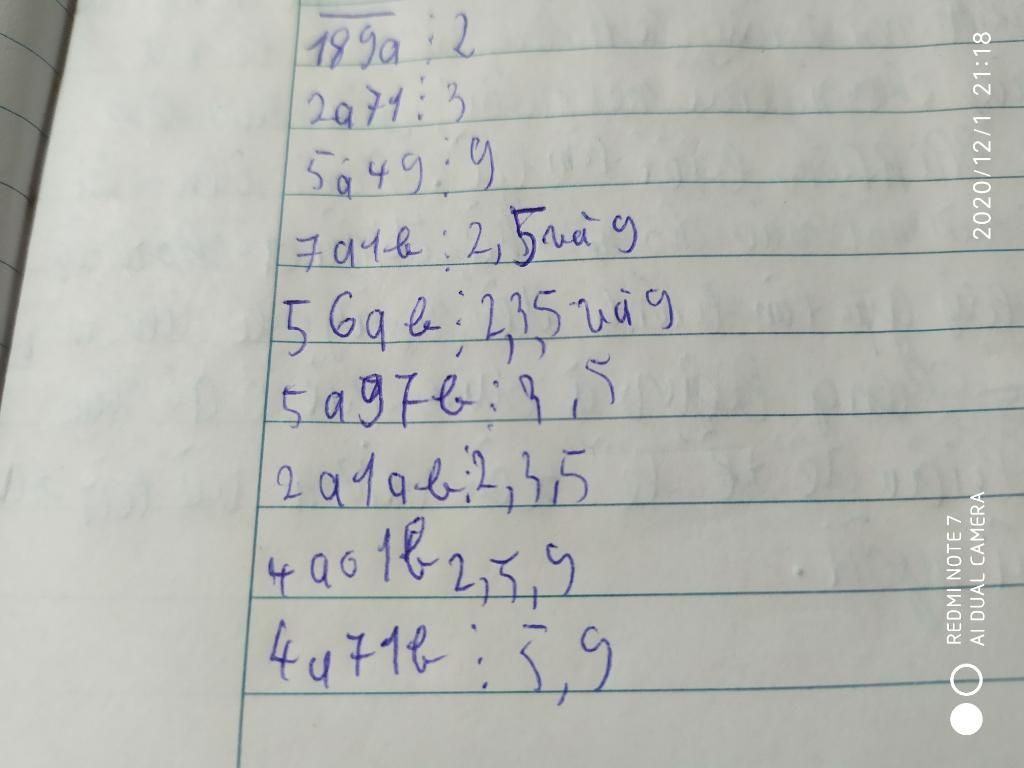 189a ⋮ 2
2a71 ⋮ 3
5a49 ⋮ 9
7a1b ⋮ 2, 5 và 9
56ab ⋮ 2,3,5 và 9
5a97b ⋮ 3, 5
2a1ab ⋮ 2, 3, 5
4a01b 2, 5, 9
4a71b ⋮ 5, 9
2020/12/1 21:18
REDMI NOTE 7
AI DUAL CAMERA